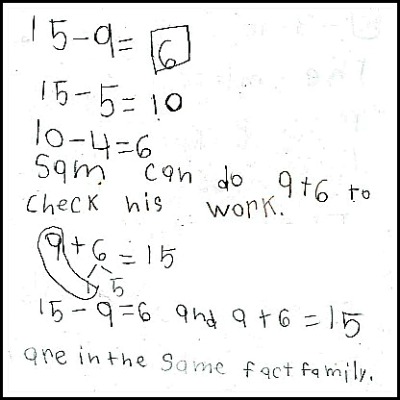 15-9=6
15-5=10
10-4=6
Sam can do 9+6 to
check his work.
9+6=15
1 5
15-9=6 and 9+6=15
are in the same fact family.